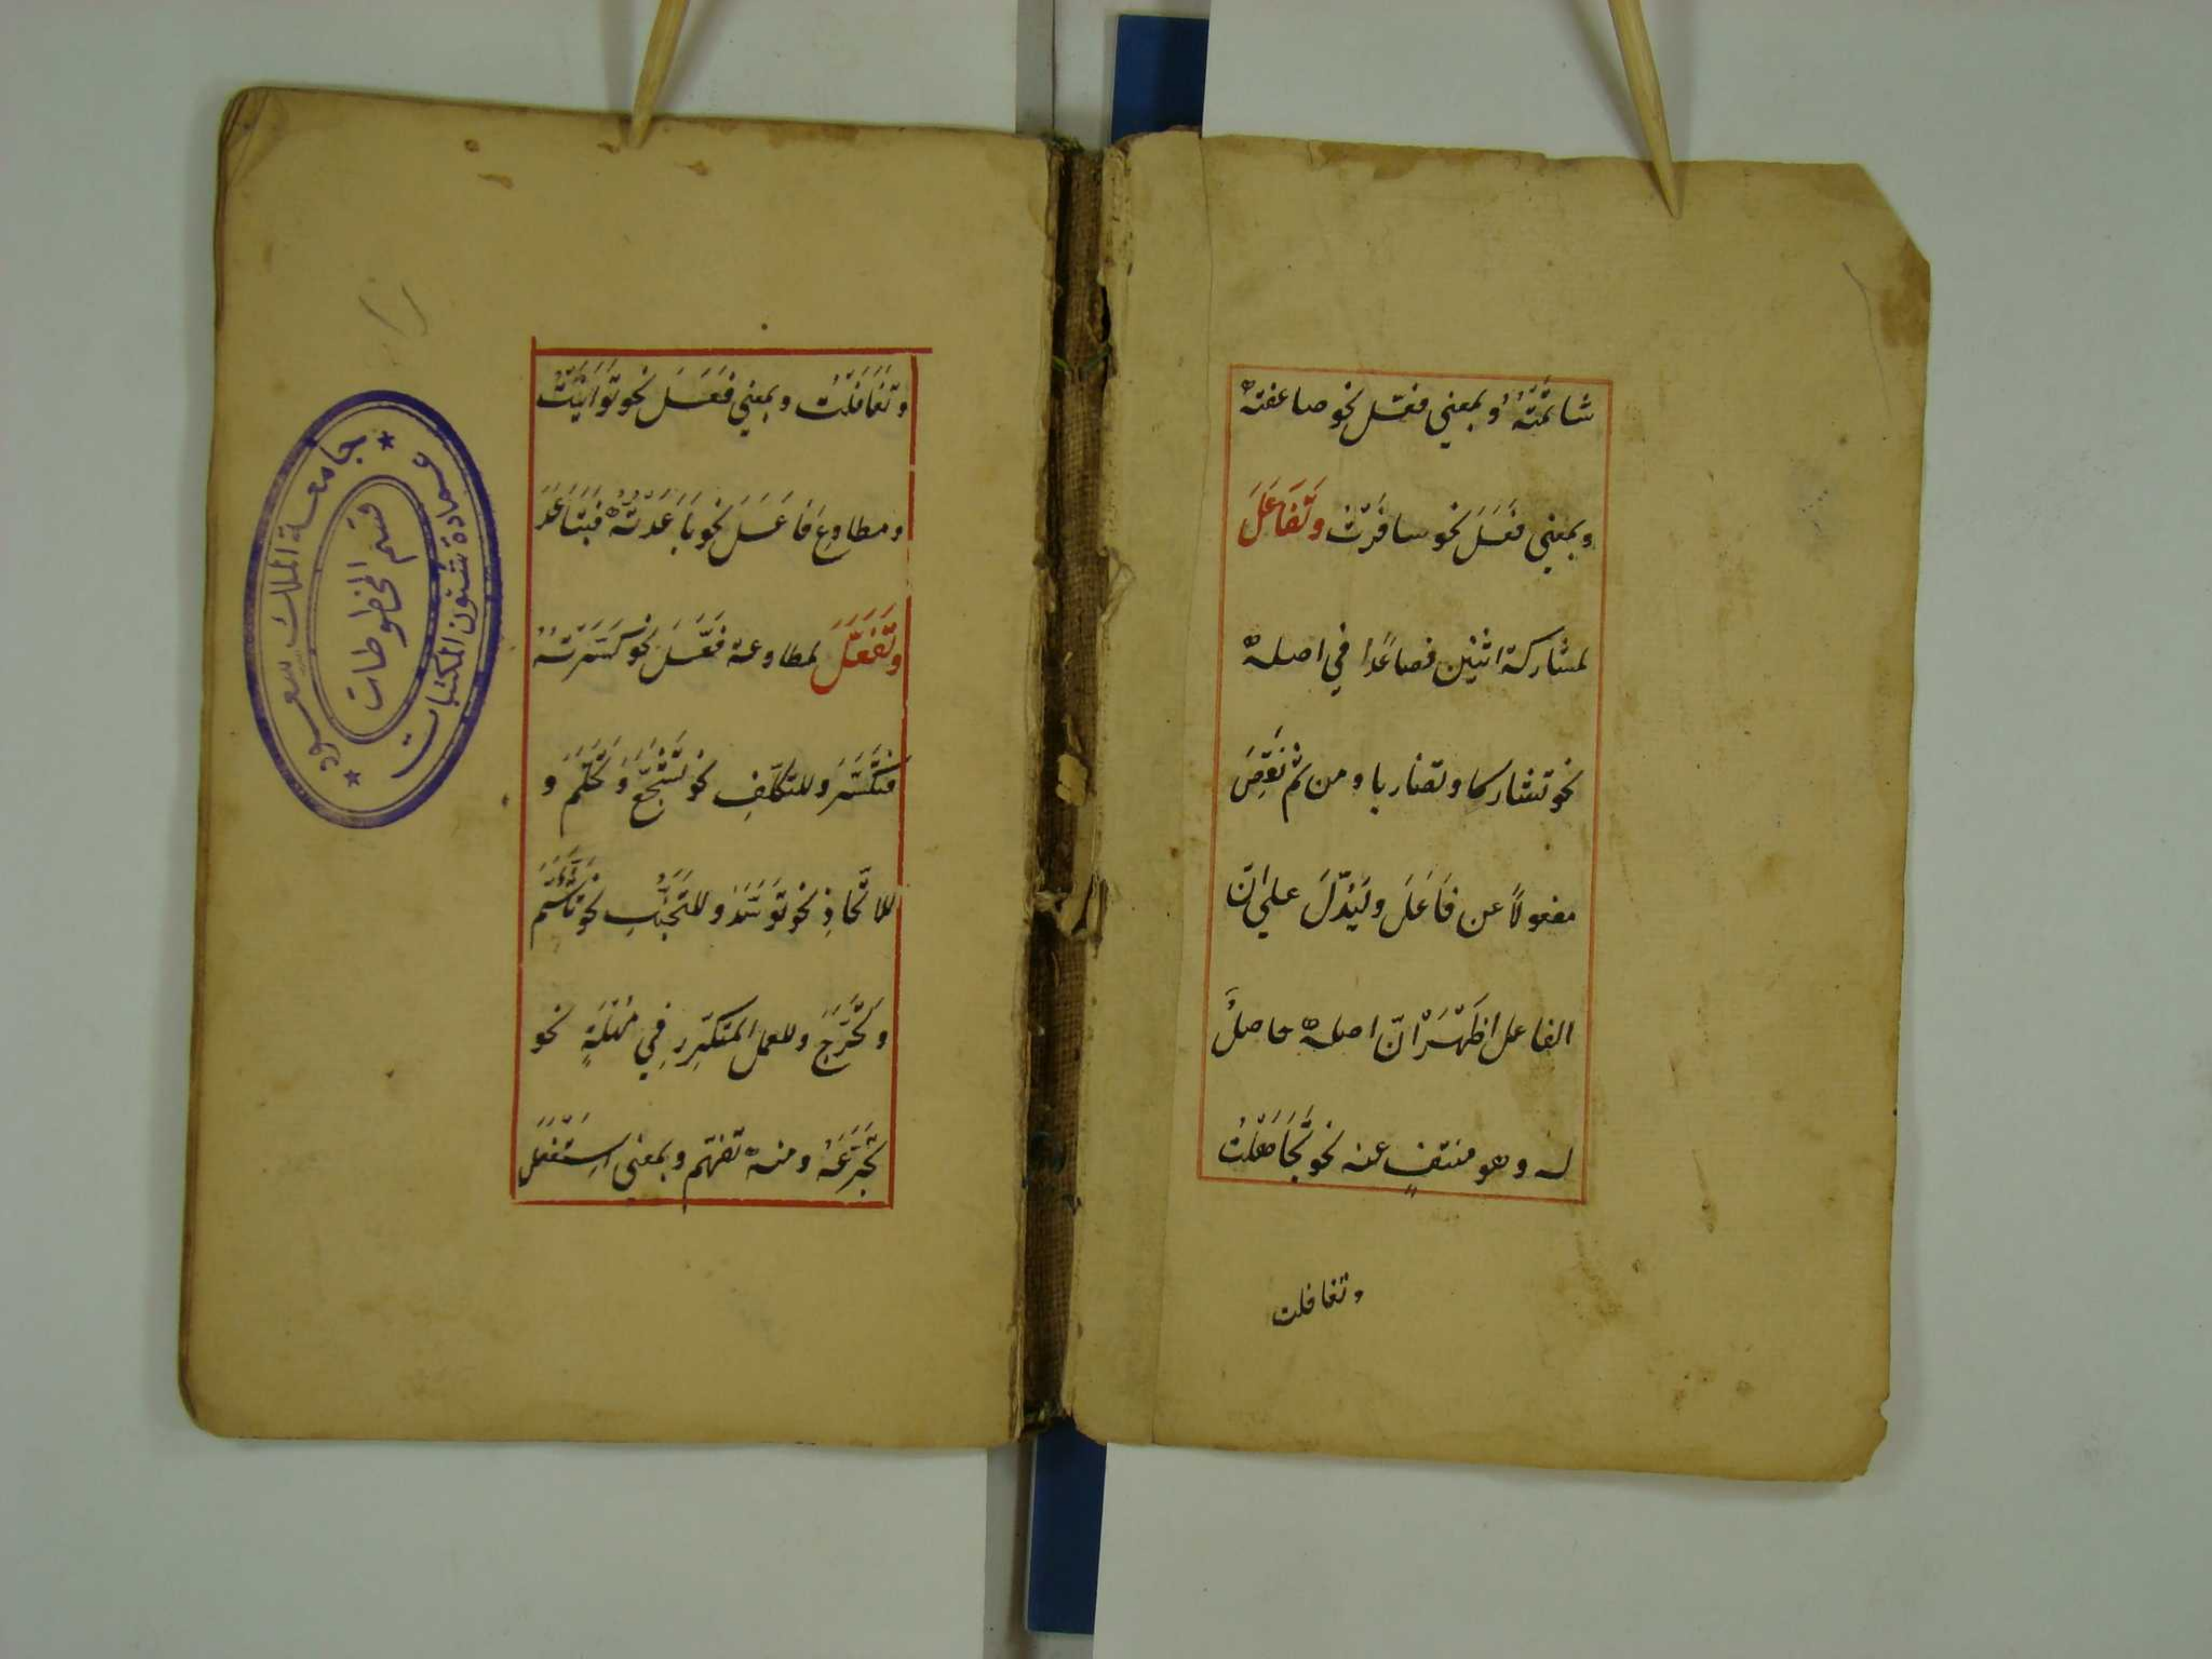 شاتَمْتَهُ وبمعني فعّل نحو صاعفته
وبمعني فَعَلَ نحو سافَرْتُ وتَفَاعَلَ
لمشاركة اثنين فصاعدًا في اصله
نحو تشاركا وتضاربا ومن ثمّ نَقَصَ
مفعولاً عن فَاعَلَ وليَدُلَّ علي انّ
الفاعل اظْهَرَ انّ اصله حاصلٌ
له وهو منتفٍ عنه نحو تَجَاهَلْتُ
وتغافلت
وتَغَافَلْتُ وبمعني فَعَلَ نحو تَوَانَيْتُ
ومطاوع فَاعَلَ نحو بَاعَدْتُهُ فَتَبَاعَدَ
وتَفَعَّلَ لمطاوعة فَعَّلَ نحو كَسَّرْتُهُ
فتَكَسَّرَ وللتكلّفِ نحو تَشَجَّعَ وتَحَلَّمَ و
للاتّخاذِ نحو تَوَسَّدَ وللتَجَنُّبِ نحو تَأَثَّمَ
وتَحَرَّجَ وللعمل المتكرّرِ فِي مُهْلَةٍ نحو
تَجَرَّعْتُهُ ومنه تفهّم وبمعني اِسْتَفْعَلَ
جامعة الملك سعود
عمادة شئون المكتبات
قسم المخطوطات